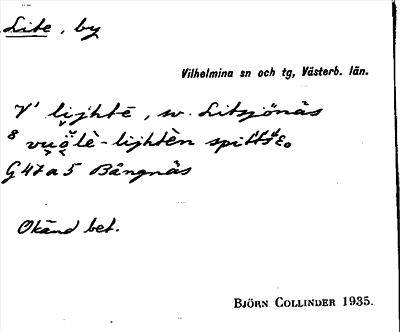 Lite, by
Vilhelmina sn och tg, Västerb. län.
V' lijhtē, sv. Litsjönäs
8 vuo̯lè-lijhtèn
G 47 a 5 Bångnäs
Okänd bet.
BJÖRN COLLINDER 1935.